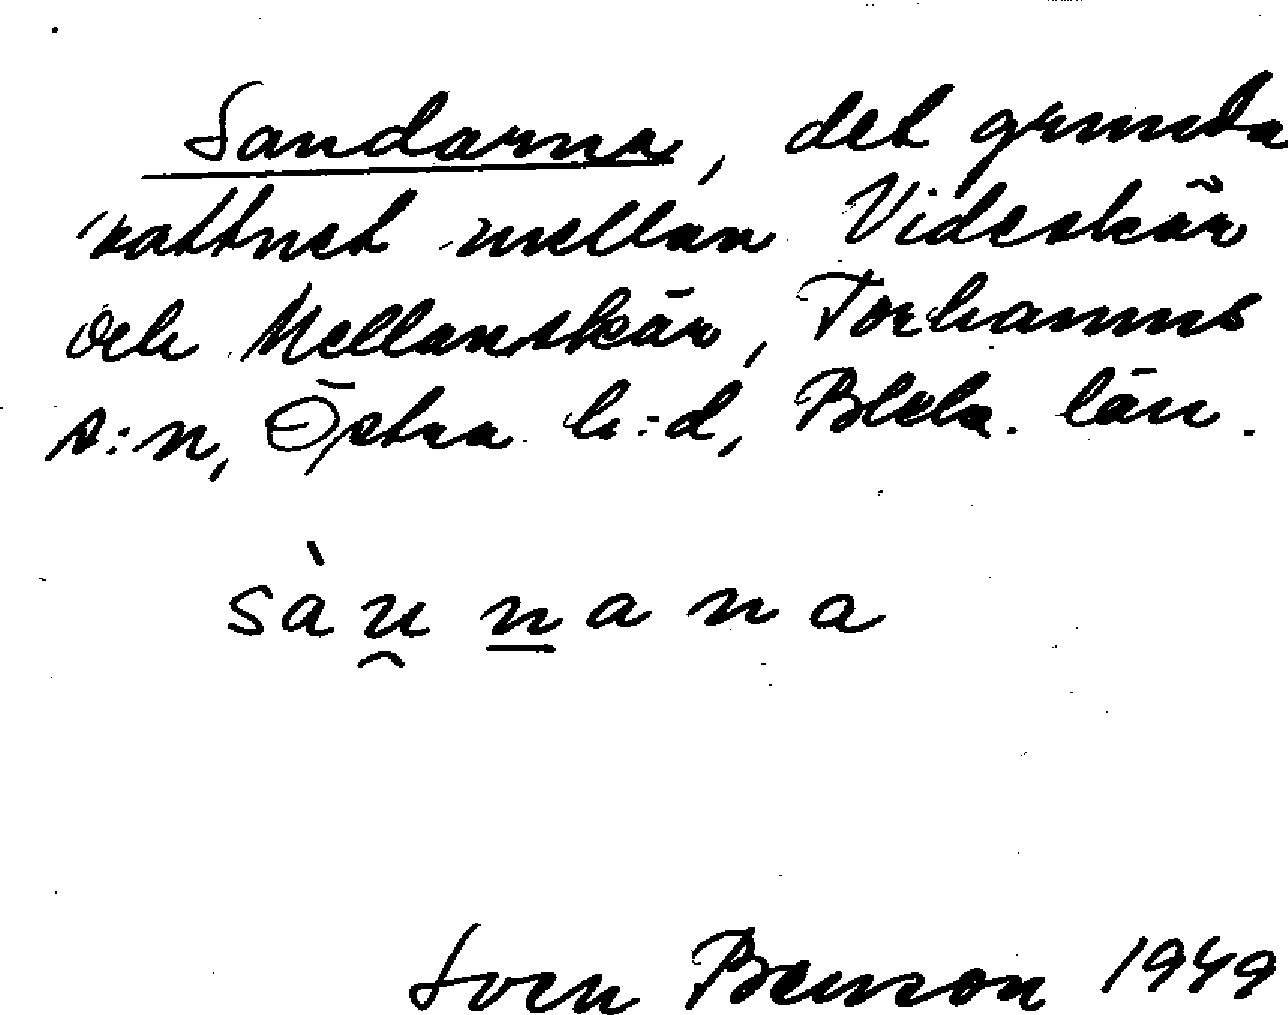 Sandarna, det grunda
vattnet mellan Videskär
och Mellanskär, Torhamns
s:n, Östra h:d, Blek. län.
sàu̯n̲ana
Sven Benson 1949